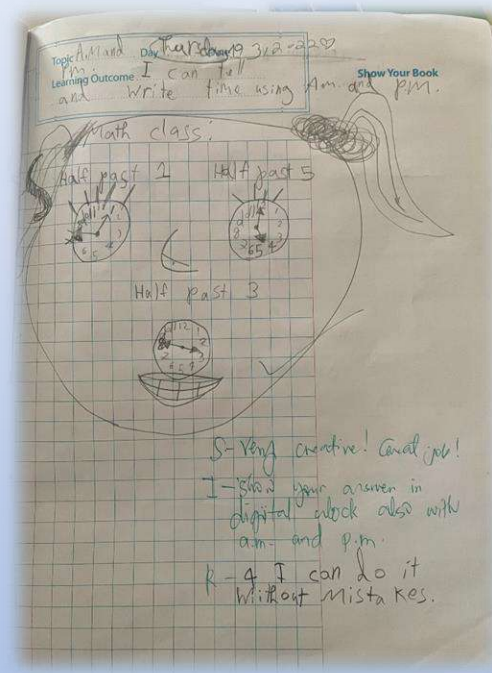 Topic A.M and Day Thursday
p.m.
Learning Outcome I can tell Show Your Book
and write time using A.m. and p.m.
Math class:
Half past 1 Half past 5
Half past 3
S- Very creative! Great job!
I - show your answer in
digital clock also with
a.m. and p.m.
R - 4 I can do it
without mistakes.